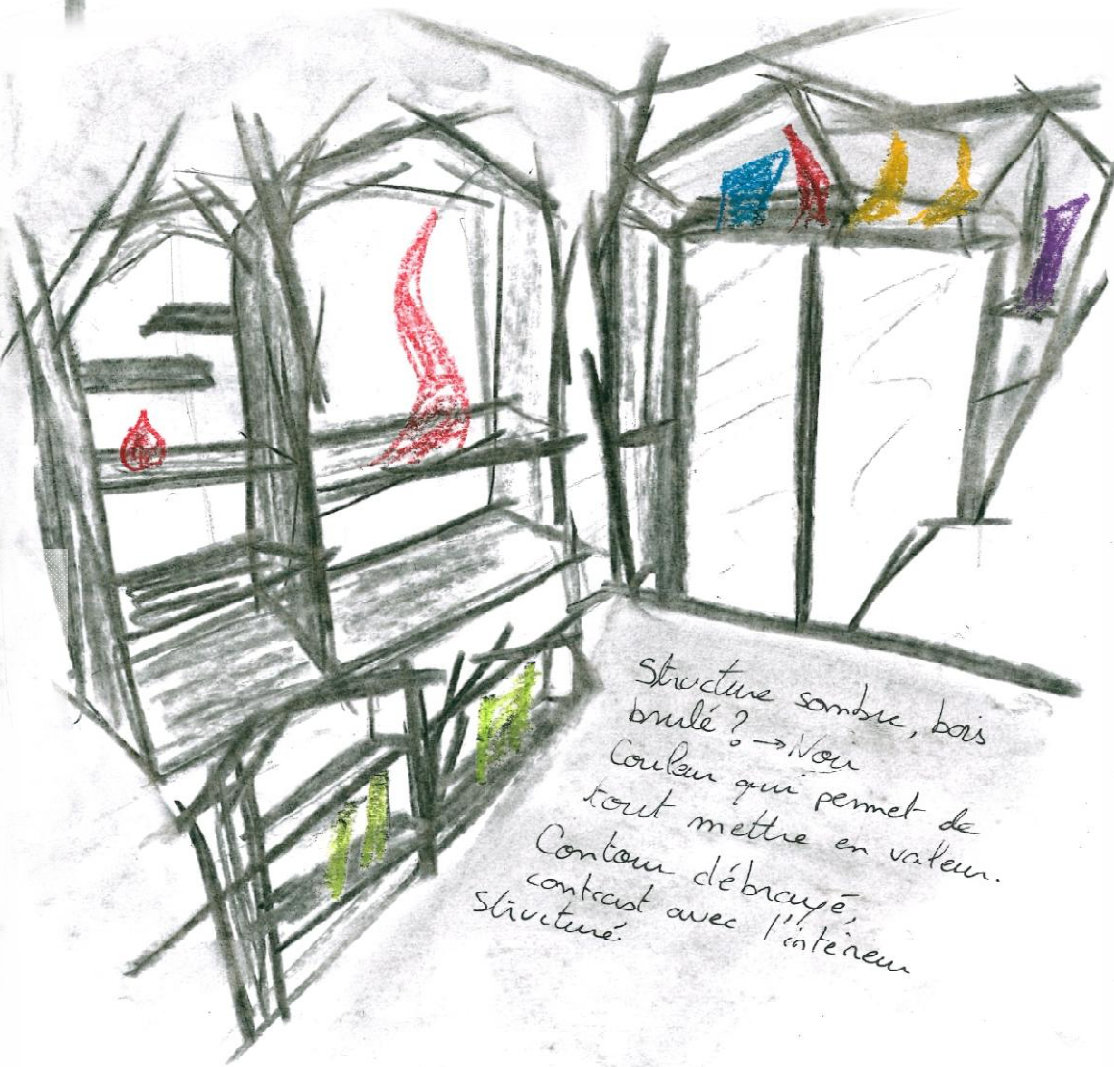 Structure sombre, bois
brulé ? → Noir
Couleur qui permet de
tout mettre en valeur.
Contour débrayé,
contrast avec l'intérieur
structuré.